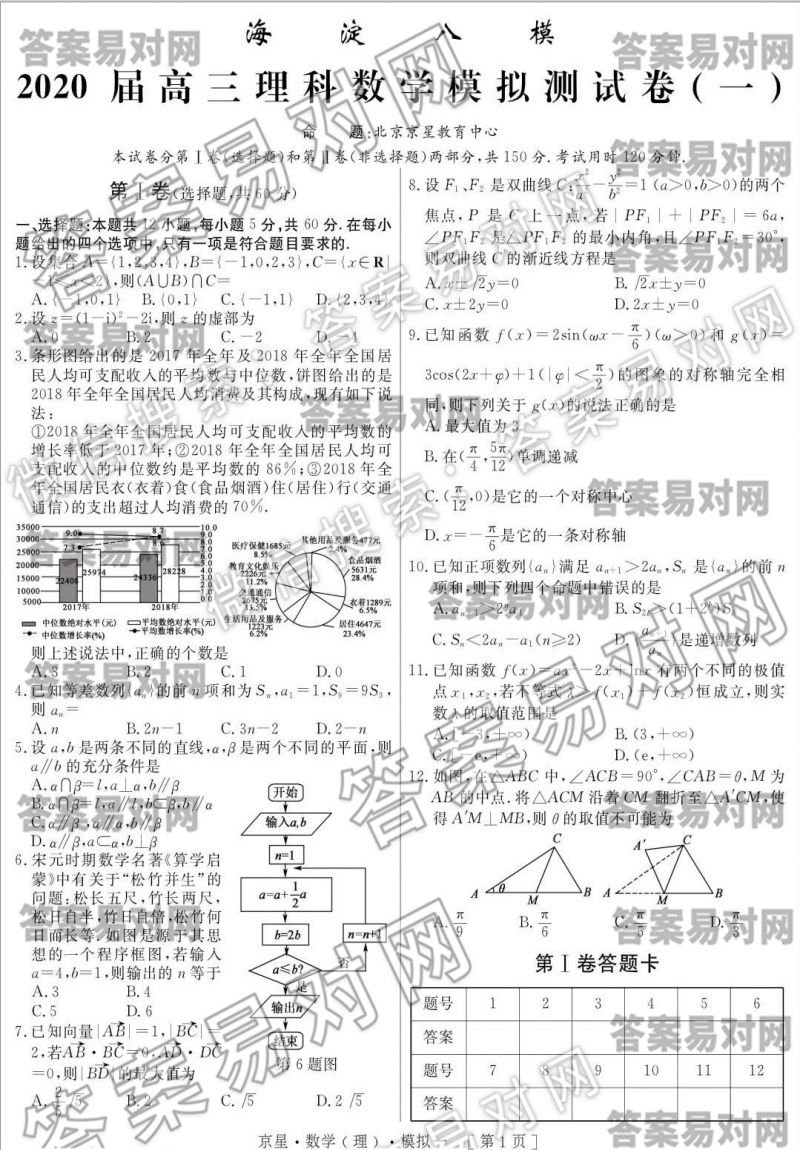 海淀八模
2020届高三理科数学模拟测试卷(一)
命 题:北京京星教育中心
本试卷分第Ⅰ卷(选择题)和第Ⅱ卷(非选择题)两部分,共150分.考试用时120分钟.
第Ⅰ卷(选择题,共60分)
一、选择题:本题共12小题,每小题5分,共60分.在每小
题给出的四个选项中,只有一项是符合题目要求的.
1.设集合A={1,2,3,4},B={-1,0,2,3},C={x∈R|
-1≤x<2},则(A∪B)∩C=
A.{-1,0,1} B.{0,1} C.{-1,1} D.{2,3,4}
2.设z=(1-i)²-2i,则z的虚部为
A.0 B.2 C.-2 D.-4
3.条形图给出的是2017年全年及2018年全年全国居
民人均可支配收入的平均数与中位数,饼图给出的是
2018年全年全国居民人均消费及其构成,现有如下说
法:
①2018年全年全国居民人均可支配收入的平均数的
增长率低于2017年;②2018年全年全国居民人均可
支配收入的中位数约是平均数的86%;③2018年全
年全国居民衣(衣着)食(食品烟酒)住(居住)行(交通
通信)的支出超过人均消费的70%.
35000 10.0
30000 9.0 8.7 9.0
25000 7.3 8.6 8.0
20000 7.0
15000 22408 25974 24336 28228
10000
5000
2017年 2018年
中位数绝对水平(元) 平均数绝对水平(元)
中位数增长率(%) 平均数增长率(%)
医疗保健1685元 8.5%
其他用品及服务477元 2.4%
教育文化娱乐 2226元 11.2%
食品烟酒 5631元 28.4%
交通通信 2675元 13.5%
衣着1289元 6.5%
生活用品及服务 1223元 6.2%
居住4647元 23.4%
则上述说法中,正确的个数是
A.3 B.2 C.1 D.0
4.已知等差数列{aₙ}的前n项和为Sₙ,a₁=1,S₉=9S₃,
则aₙ=
A.n B.2n-1 C.3n-2 D.2-n
5.设a,b是两条不同的直线,α,β是两个不同的平面,则
a∥b的充分条件是
A.α∩β=l,a⊥α,b∥β
B.α∩β=l,a∥l,b⊂β,b∥α
C.α∥β,a∥α,b∥β
D.α∥β,a⊂α,b⊥β
6.宋元时期数学名著《算学启
蒙》中有关于“松竹并生”的
问题:松长五尺,竹长两尺,
松日自半,竹日自倍,松竹何
日而长等.如图是源于其思
想的一个程序框图,若输入
a=4,b=1,则输出的n等于
A.3 B.4
C.5 D.6
开始
输入a,b
n=1
a=a+1/2a
b=2b
n=n+1
a≤b?
否
是
输出n
结束
第6题图
7.已知向量|AB|=1,|BC|=
2,若AB·BC=0,AD·DC
=0,则|BD|的最大值为
A.2/5√5 B.2 C.√5 D.2√5
8.设F₁、F₂是双曲线C:x²/a²-y²/b²=1(a>0,b>0)的两个
焦点,P是C上一点,若|PF₁|+|PF₂|=6a,
∠PF₁F₂是△PF₁F₂的最小内角,且∠PF₁F₂=30°,
则双曲线C的渐近线方程是
A.x±√2y=0 B.√2x±y=0
C.x±2y=0 D.2x±y=0
9.已知函数f(x)=2sin(ωx-π/6)(ω>0)和g(x)=
3cos(2x+φ)+1(|φ|<π/2)的图象的对称轴完全相
同,则下列关于g(x)的说法正确的是
A.最大值为3
B.在(π/4,5π/12)单调递减
C.(π/12,0)是它的一个对称中心
D.x=-π/6是它的一条对称轴
10.已知正项数列{aₙ}满足aₙ₊₁>2aₙ,Sₙ是{aₙ}的前n
项和,则下列四个命题中错误的是
A.aₙ₊₁>2ⁿa₁ B.S₂ₙ>(1+2ⁿ)Sₙ
C.Sₙ<2aₙ-a₁(n≥2) D.{aₙ₊₁/aₙ}是递增数列
11.已知函数f(x)=ax²-2x+lnx有两个不同的极值
点x₁,x₂,若不等式λ>f(x₁)+f(x₂)恒成立,则实
数λ的取值范围是
A.[-3,+∞) B.(3,+∞)
C.[-e,+∞) D.(e,+∞)
12.如图,在△ABC中,∠ACB=90°,∠CAB=θ,M为
AB的中点.将△ACM沿着CM翻折至△A′CM,使
得A′M⊥MB,则θ的取值不可能为
C
A θ M B
A′ C
A M B
A.π/9 B.π/6 C.π/5 D.π/3
第Ⅰ卷答题卡
题号 1 2 3 4 5 6
答案
题号 7 8 9 10 11 12
答案
京星·数学(理)·模拟一 [第1页]
答案易对网
微信搜索:答案易对网